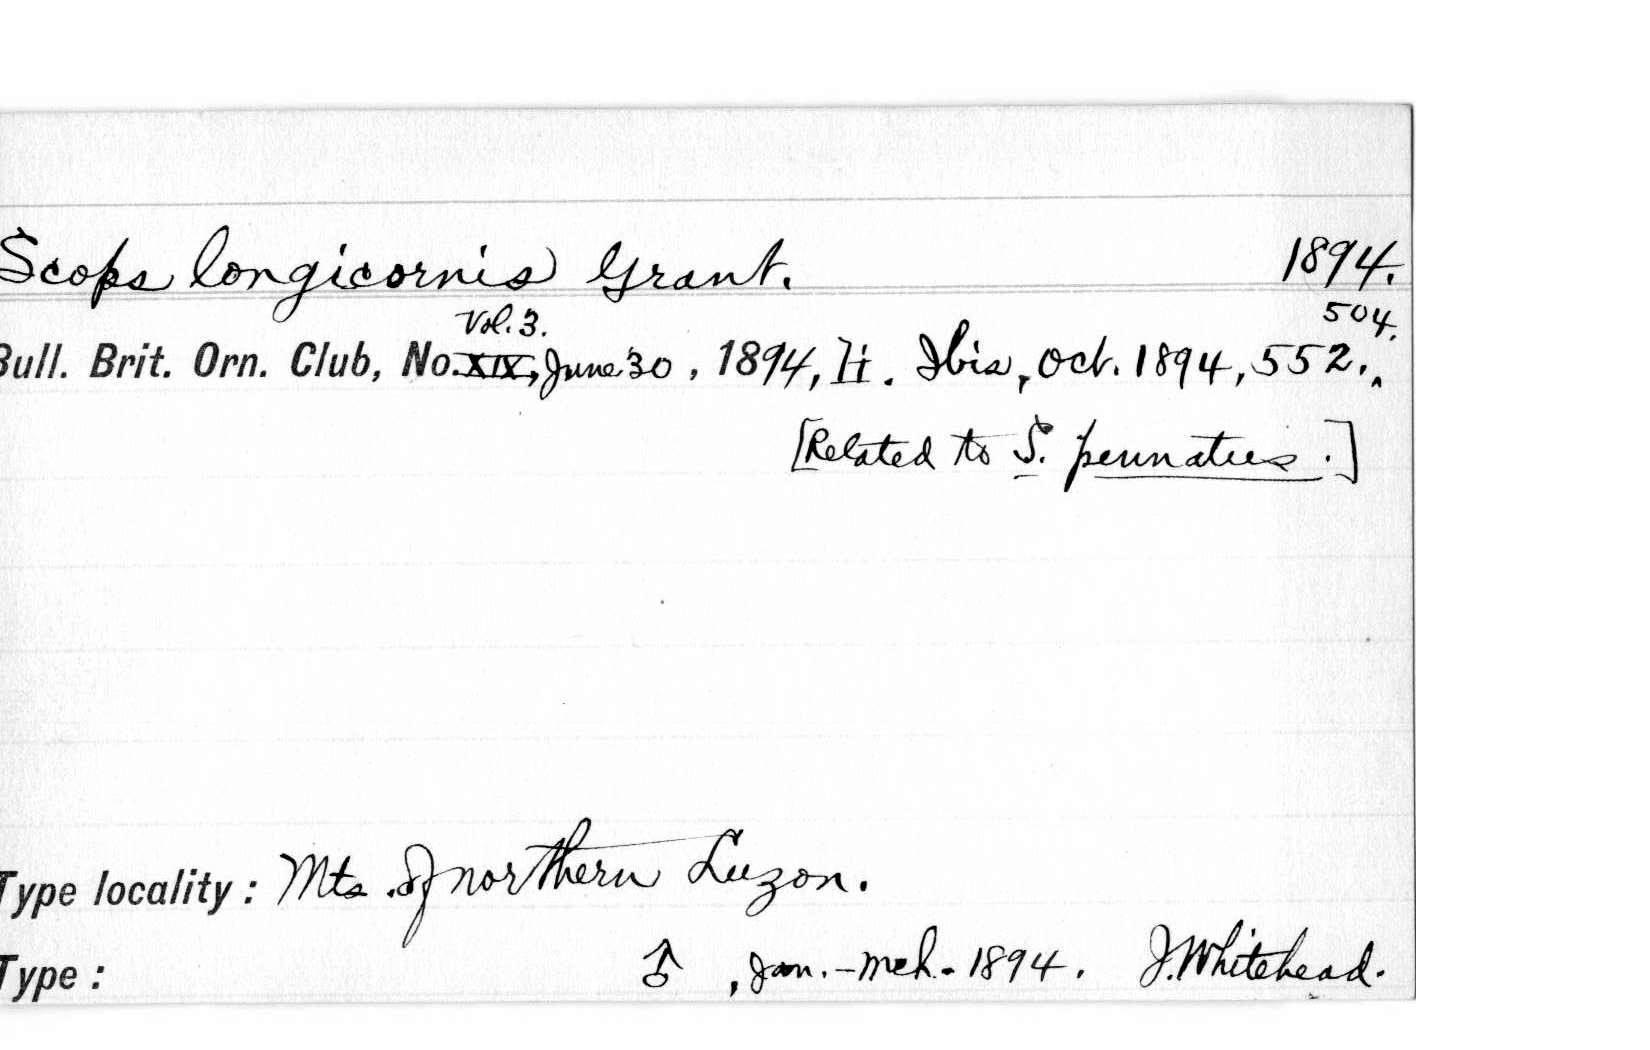 Scops longicornis Grant. 1894.
Vol. 3. 504.
Bull. Brit. Orn. Club, No. XIX, June 30, 1894, li. Ibis, Oct. 1894, 552.
[Related to S. pennatus.]
Type locality: Mts. of northern Luzon.
Type: ♂, Jan.-Mch. 1894. J. Whitehead.